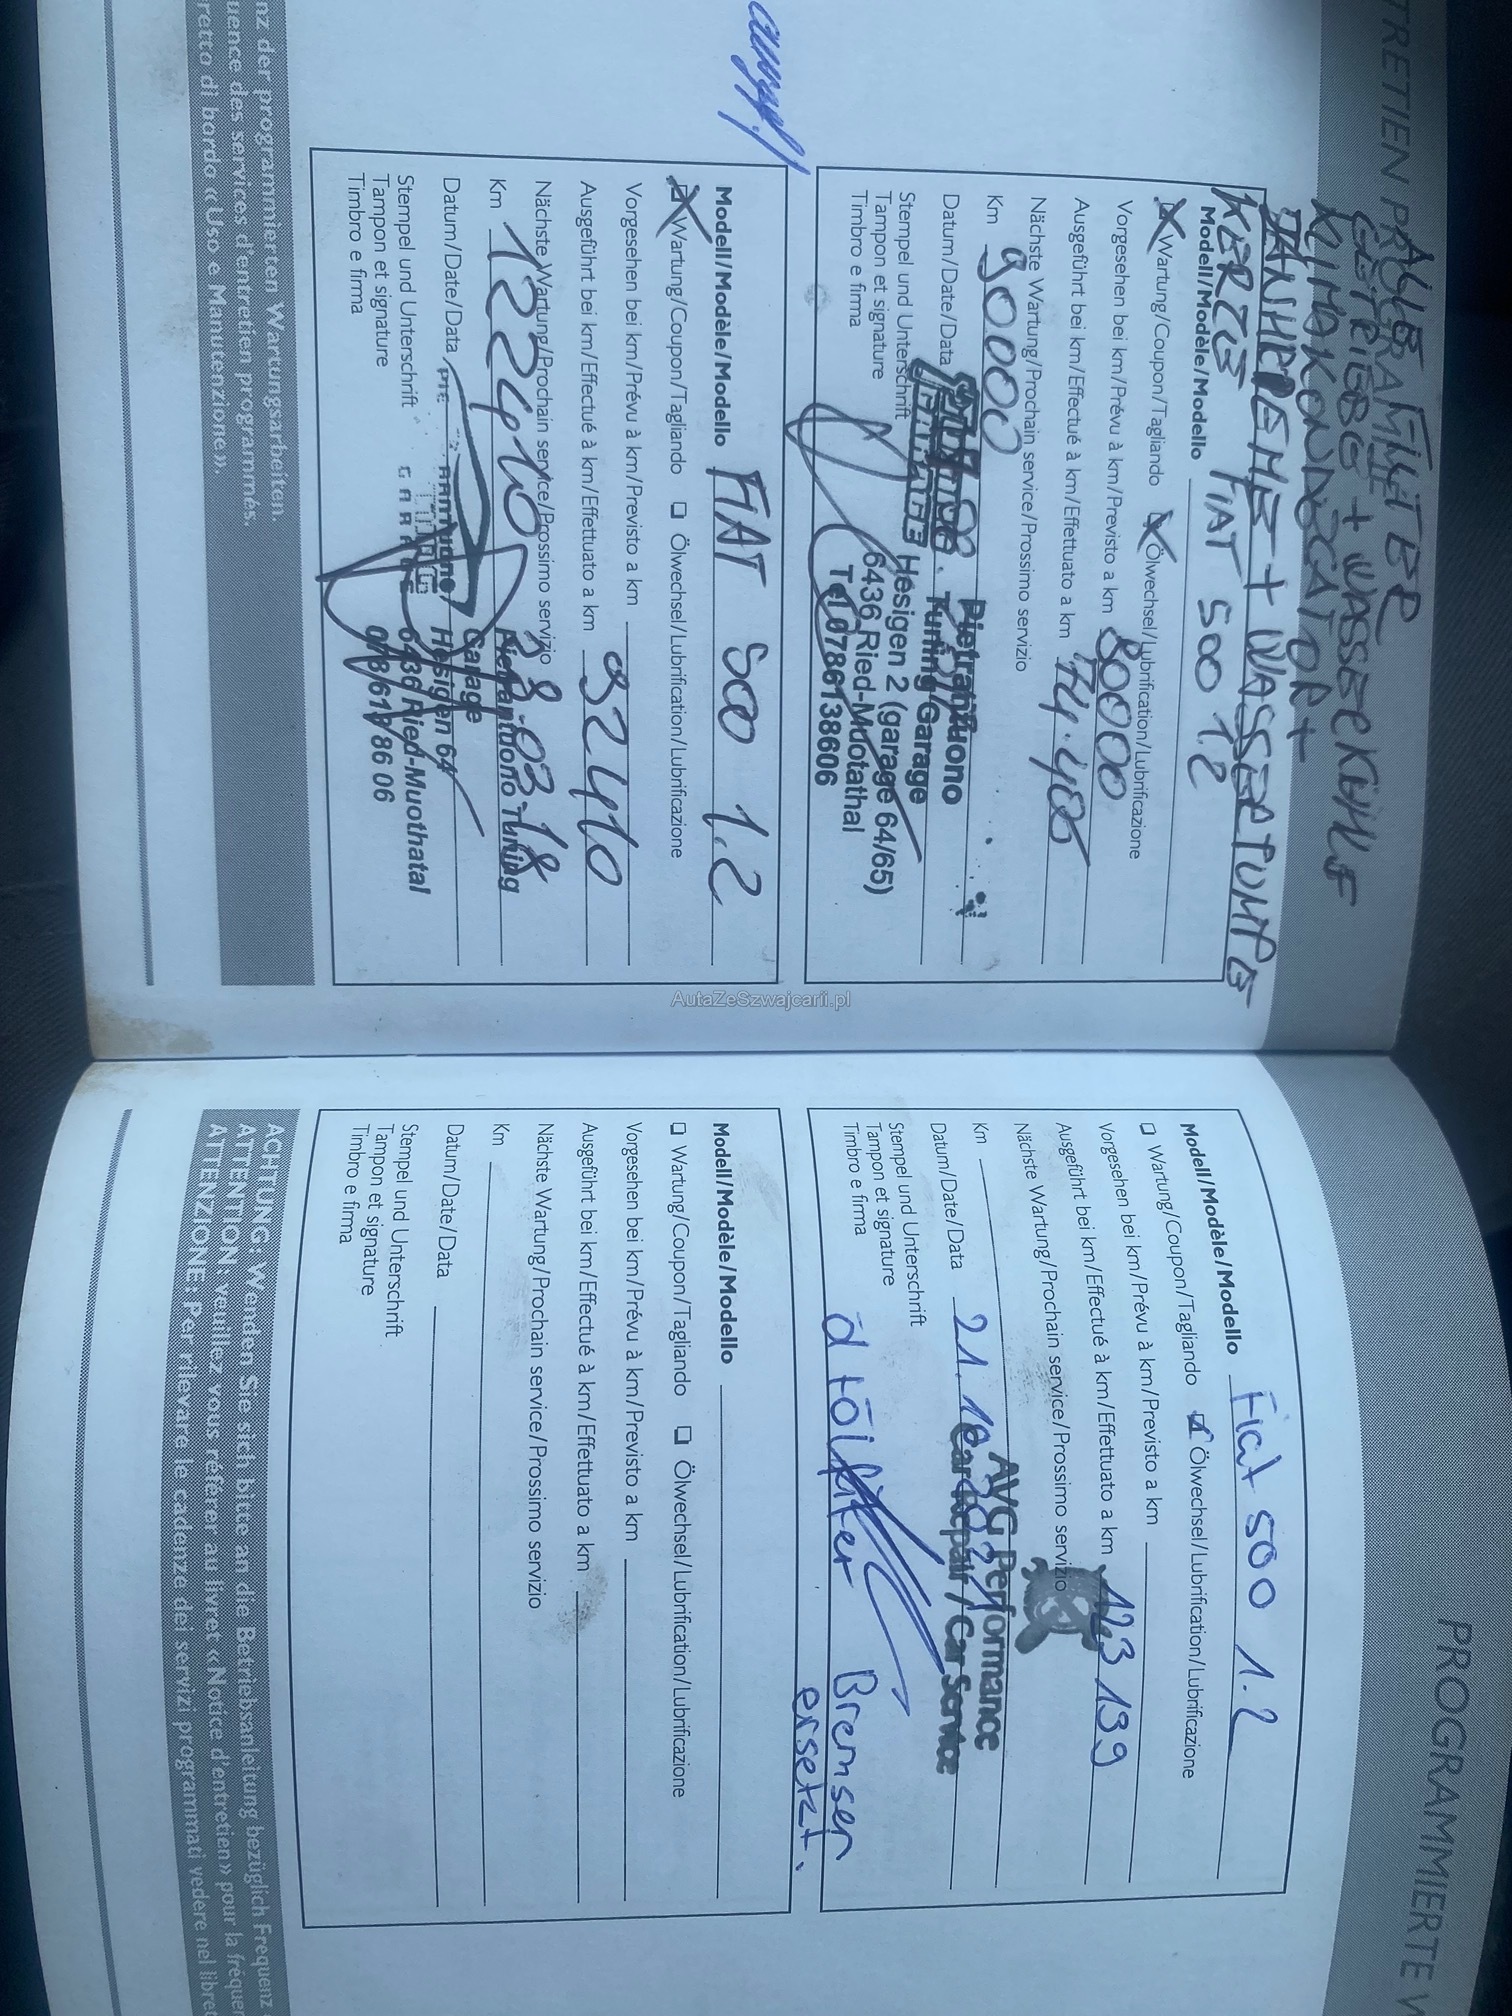 TRETIEN PR
ALLE FILTER
GETRIEBE + WASSERKÜHLE
KLIMAKONDSCATOR+
+ WASSERPUMPE
KERZE
Modell/Modèle/Modello FIAT 500 1.2
Wartung/Coupon/Tagliando Ölwechsel/Lubrification/Lubrificazione
Vorgesehen bei km/Prévu à km/Previsto a km 80000
Ausgeführt bei km/Effectué à km/Effettuato a km 74.405
Nächste Wartung/Prochain service/Prossimo servizio
Km 90000
Datum/Date/Data
Stempel und Unterschrift
Tampon et signature
Timbro e firma
Pietrabuono
Tuning Garage
Hesigen 2 (garage 64/65)
6436 Ried-Muotathal
Tel.0786138606
Modell/Modèle/Modello FIAT 500 1.2
Wartung/Coupon/Tagliando Ölwechsel/Lubrification/Lubrificazione
Vorgesehen bei km/Prévu à km/Previsto a km
Ausgeführt bei km/Effectué à km/Effettuato a km 92410
Nächste Wartung/Prochain service/Prossimo servizio
Km 122410
Datum/Date/Data
Stempel und Unterschrift
Tampon et signature
Timbro e firma
Tuning
Garage
Hesigen 64
6436 Ried-Muothatal
078 613 86 06
nz der programmierten Wartungsarbeiten.
uence des services d'entretien programmés.
retto di bordo «Uso e Manutenzione».
AutaZeSzwajcarii.pl
PROGRAMMIERTE V
Modell/Modèle/Modello Fiat 500 1.2
Wartung/Coupon/Tagliando Ölwechsel/Lubrification/Lubrificazione
Vorgesehen bei km/Prévu à km/Previsto a km
Ausgeführt bei km/Effectué à km/Effettuato a km 123 199
Nächste Wartung/Prochain service/Prossimo servizio
Km
AVG Performance
Datum/Date/Data 21.10
Car Repair / Car Service
Stempel und Unterschrift
Tampon et signature
Timbro e firma
ölfilter Bremsen
ersetzt.
Modell/Modèle/Modello
Wartung/Coupon/Tagliando Ölwechsel/Lubrification/Lubrificazione
Vorgesehen bei km/Prévu à km/Previsto a km
Ausgeführt bei km/Effectué à km/Effettuato a km
Nächste Wartung/Prochain service/Prossimo servizio
Km
Datum/Date/Data
Stempel und Unterschrift
Tampon et signature
Timbro e firma
ACHTUNG: Wenden Sie sich bitte an die Betriebsanleitung bezüglich Frequenz
ATTENTION: veuillez vous référer au livret «Notice d'entretien» pour la fréquen
ATTENZIONE: per rilevare le cadenze dei servizi programmati vedere nel libret